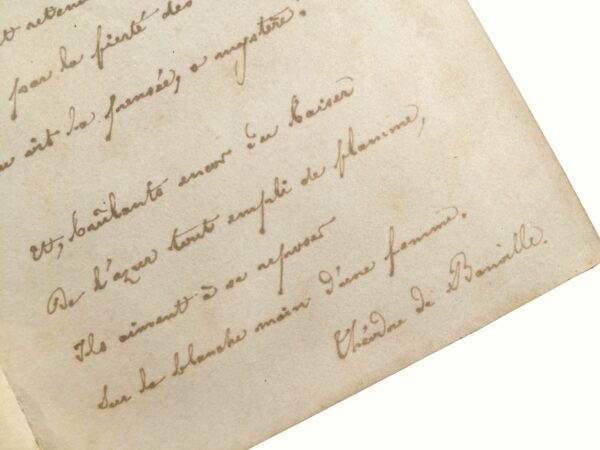 et reten
par la fierté des
vit la pensée, ô mystère!
Et, brûlants encor du baiser
De l'azur tout empli de flamme,
Ils aiment à se reposer
Sur la blanche main d'une femme.
Théodore de Banville.